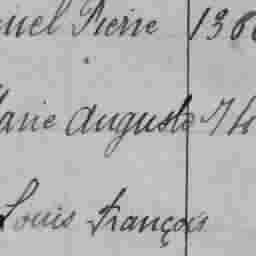 uel Pierre 138
Marie Auguste 74
Louis François